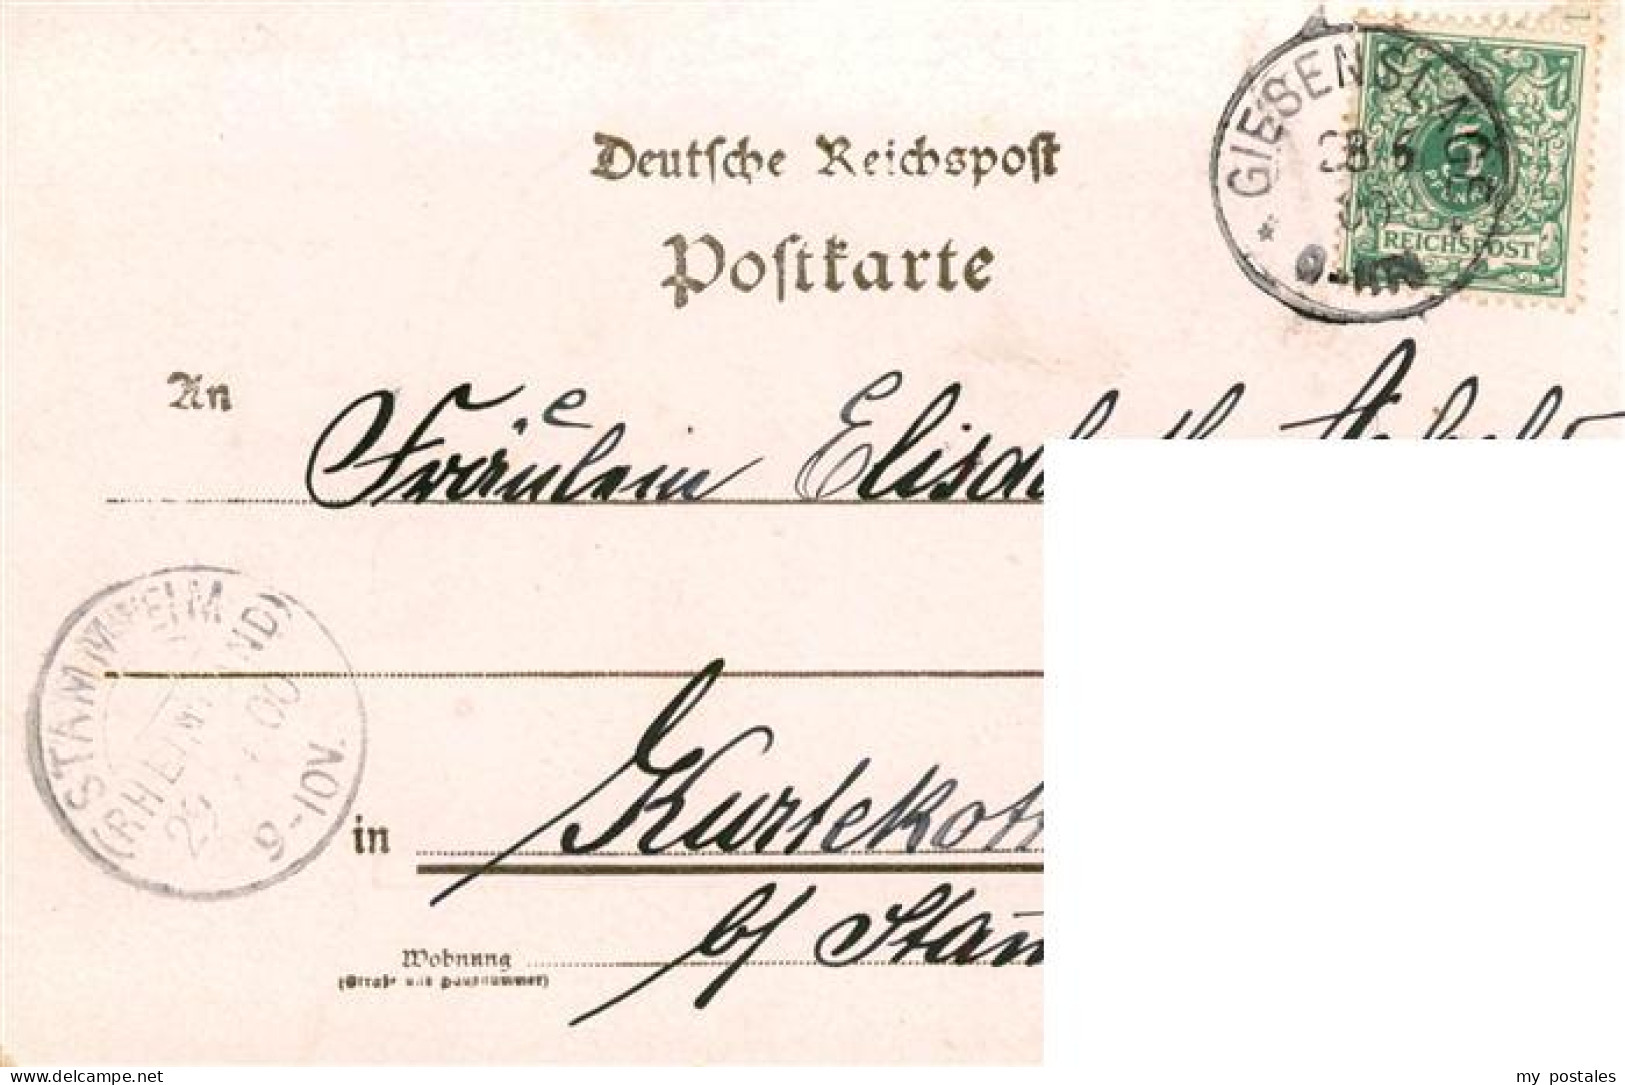 Deutsche Reichspost
Postkarte
GIESENSLAGE
28.6.00
5
PFENNIG
REICHSPOST
An
Fräulein Elisabeth
STAMMHEIM
(RHEINLAND)
9-10V.
in
Kurtekotten
b/ Stam
Wohnung
(Straße und Hausnummer)
> Delcampe.net
my_postales